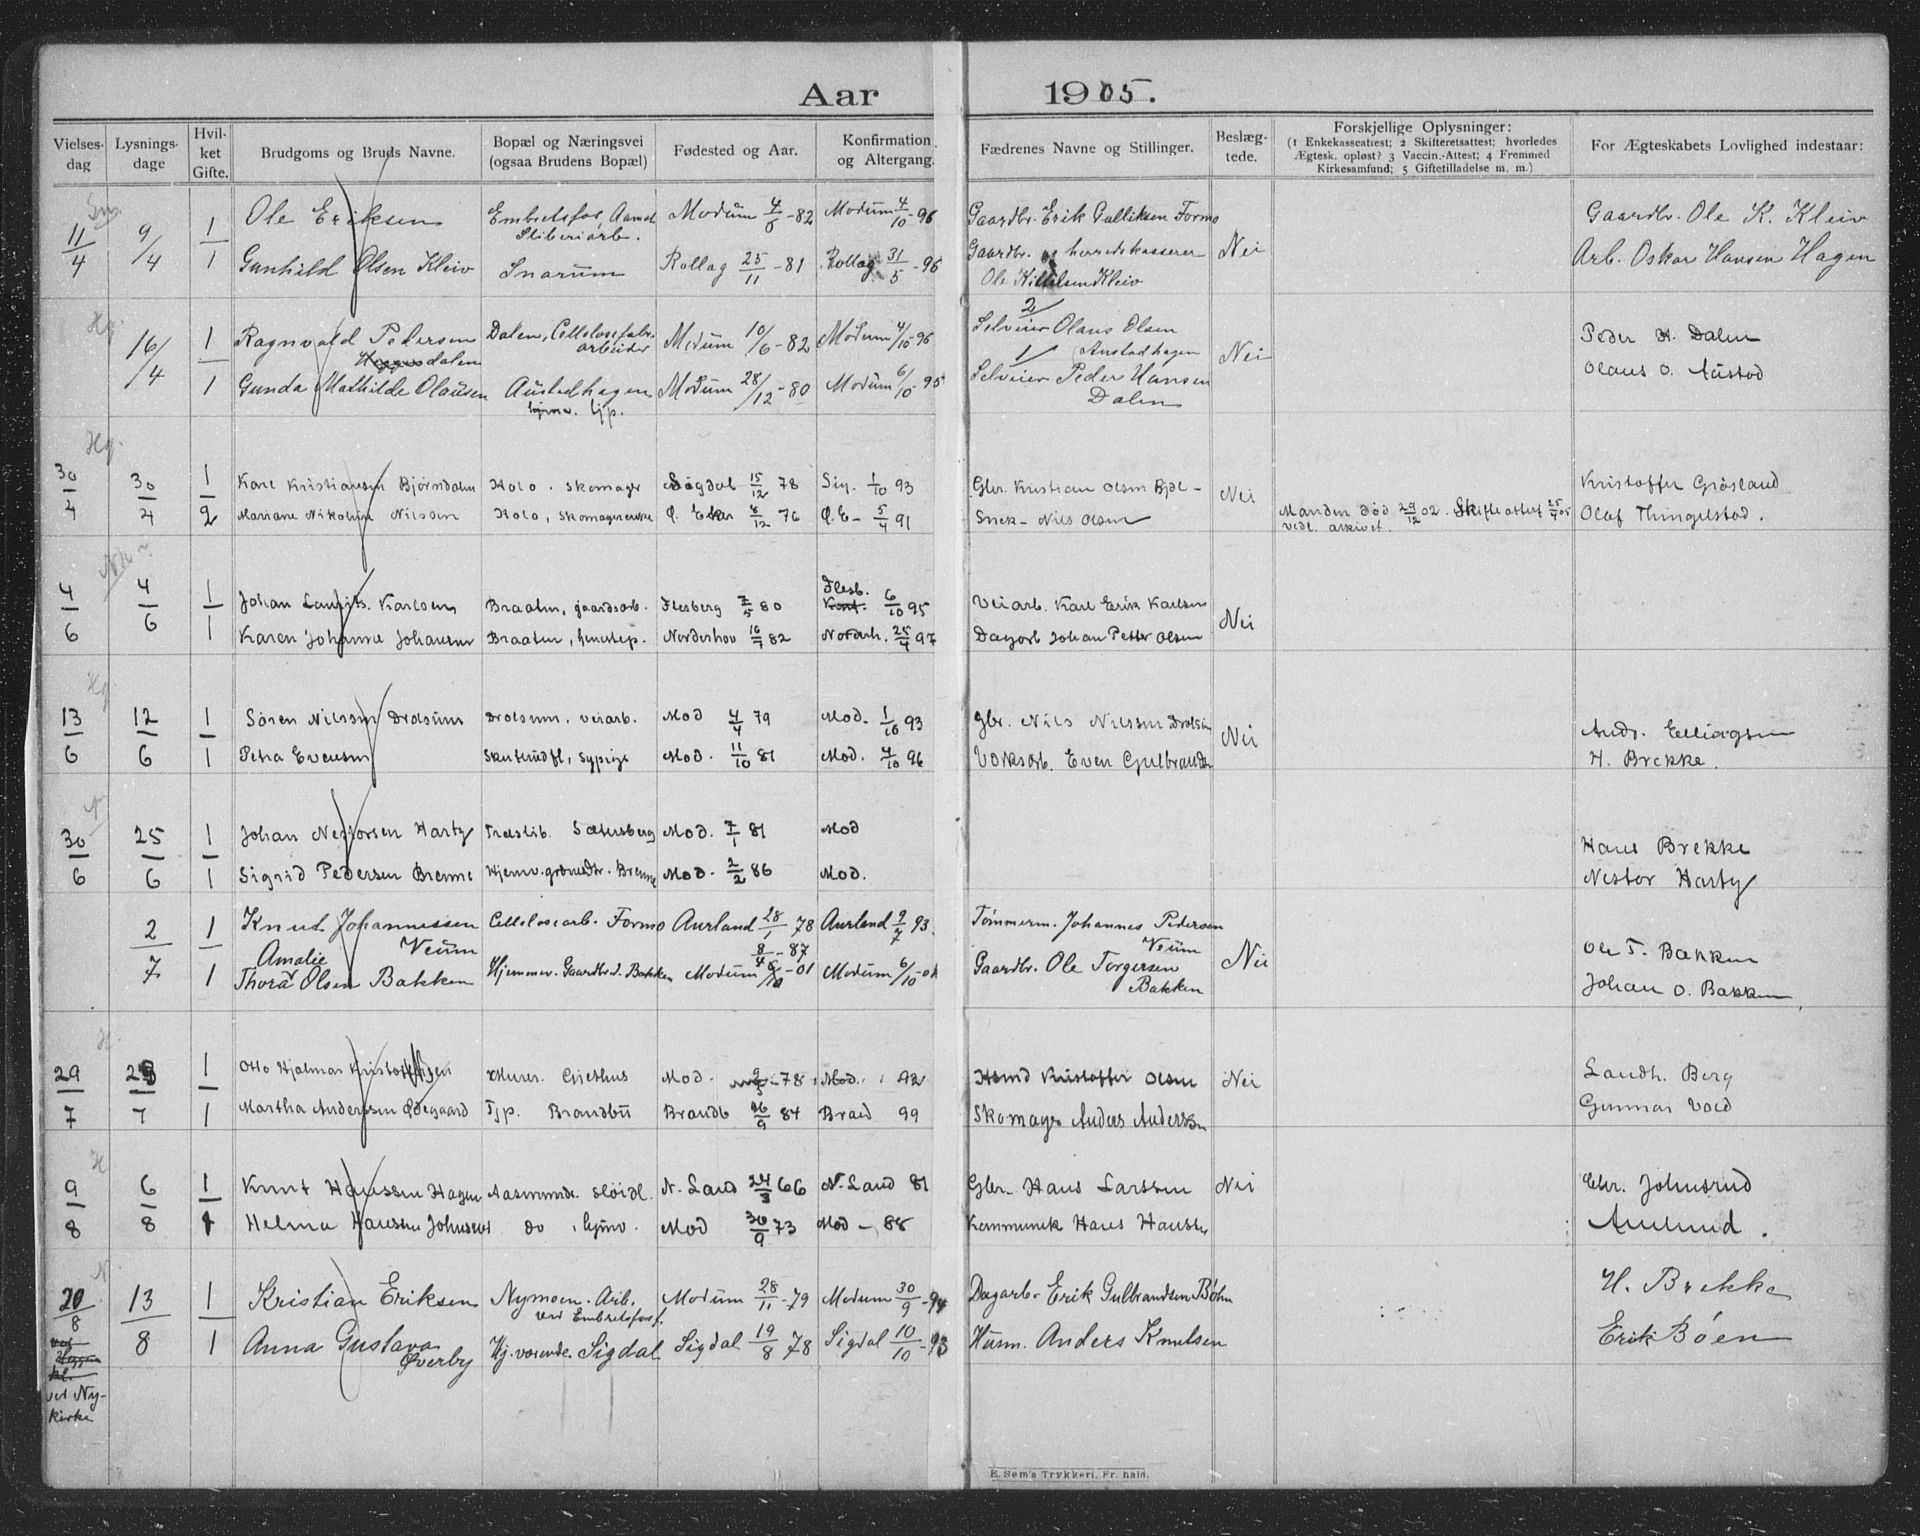 Aar 1905.
Vielsesdag
Lysningsdage
Hvilket Gifte.
Brudgoms og Bruds Navne.
Bopæl og Næringsvei (ogsaa Brudens Bopæl)
Fødested og Aar.
Konfirmation og Altergang.
Fædrenes Navne og Stillinger.
Beslægtede.
Forskjellige Oplysninger:
(1 Enkekasseattest; 2 Skifteretsattest; hvorledes
Ægtesk. opløst? 3 Vaccin.-Attest; 4 Fremmed
Kirkesamfund; 5 Giftetilladelse m. m.)
For Ægteskabets Lovlighed indestaar:
Sn.
11/4 9/4 1 Ole Eriksen Embretsfos Sliberiarb. Modum 4/6-82 Modum 4/10-96 Gaardbr. Erik Gulliksen Formo Nei Gaardbr. Ole K. Kleiv
1 Gunhild Olsen Kleiv Snarum Rollag 25/11-81 Rollag 31/5-96 Gaardbr. og herredskasserer Arb. Oskar Hansen Hagen
Ole Kittilsen Kleiv
Hg.
16/4 1 Ragnvald Pedersen Dalen, Cellulosefabr. arbeider Modum 10/6-82 Modum 4/10-96 2/ Selveier Olaus Olsen Nei Peder H. Dalen
dalen Austadhagen
1 Gunda Mathilde Olausen Austadhagen Modum 28/12-80 Modum 6/10-95 1/ Selveier Peder Hansen Olaus O. Austad
hjmv. tjp. Dalen
Hg.
30/4 30/4 1 Karl Kristiansen Bjørndalen Kolo. skomager Sigdal 15/12 78 Sig. 1/10 93 Gbr. Kristian Olsen Bjdl- Nei Kristoffer Grøsland
2 Mariane Nikoline Nilssen Kolo, skomagerenke Ø. Eker 8/12 76 Ø. E- 5/4 91 Snek- Nils Olsen Manden død 29/12 02. Skifteattest 25/4 05 Olaf Thingelstad.
vedl. arkivet.
4/6 4/6 1 Johan Lauritz Karlsen Braaten, gaardsarb. Flesberg 7/5 80 Flesb. 6/10 95 Veiarb. Karl Erik Karlsen Nei
1 Karen Johanne Johansen Braaten, Norderhov 16/7 82 Norderh. 25/4 97 Dagarb Johan Petter Olsen
Hg
13/6 12/6 1 Søren Nilssen Drolsum Drolsum, veiarb. Mod 4/4 79 Mod. 1/10 93 Gbr. Nils Nilssen Drolsum Nei Andr. Elliagsen
1 Petra Evensen Skuterudfl, sypige Mod. 11/10 81 Mod. 4/10 96 Voksarb. Even Gulbrands H. Brekke.
30/6 25/6 1 Johan Nestorsen Harty Træslib. Sætersberg Mod. 7/1 81 Mod Hans Brekke
1 Sigrid Pedersen Brenne Hjemv. grdmdtr. Brenne Mod. 2/2 86 Mod. Nestor Harty
2/7 1 Knut Johannessen Cellulosearb. Formo Aurland 28/1 78 Aurland 9/7 93. Tømmerm. Johannes Pedersen Nei Ole T. Bakken
Veum Veum
Amalie 8/4-87
1 Thora Olsen Bakken Hjemmev. Gaardbr.d. Bakken Modum -01 Modum 6/10-01 Gaardbr. Ole Torgersen Johan O. Bakken.
Bakken
H.
29/7 1 Otto Hjalmar Kristoffersen Murer. Gjethus Mod. 78 Mod. 92 Hsmd Kristoffer Olsen Nei Landh. Berg
7 1 Martha Anderssen Ødegaard Tjp. Brandbu Brandb 26/9 84 Brand 99 Skomager Anders Anderssen Gunnar Vold
H
9/8 6/8 1 Knut Hanssen Hagen Aasmundr. sløidl. N. Land 24/3 66 N. Land 81 Gbr- Hans Larssen Nei Chr. Johnsrud
1 Helma Hanssen Johnsrud do, hjmv. Mod 30/9 73 Mod - 88 Kommunek Hans Hanssen Amlund.
N
20/8 13/8 1 Kristian Eriksen Nymoen. Arb. Modum 28/11-79 Modum 30/9-94 Dagarb- Erik Gulbrandsen Bøhn H. Brekke
ved Embretsfosf.
1 Anna Gustava Hj. værende. Sigdal Sigdal 19/8 78 Sigdal 10/10-93 Husm. Anders Knutsen Erik Bøen
Øverby
ved
Heggen
kl.
ved Ny-
kirke
E. Sem's Trykkeri, Fr. hald.